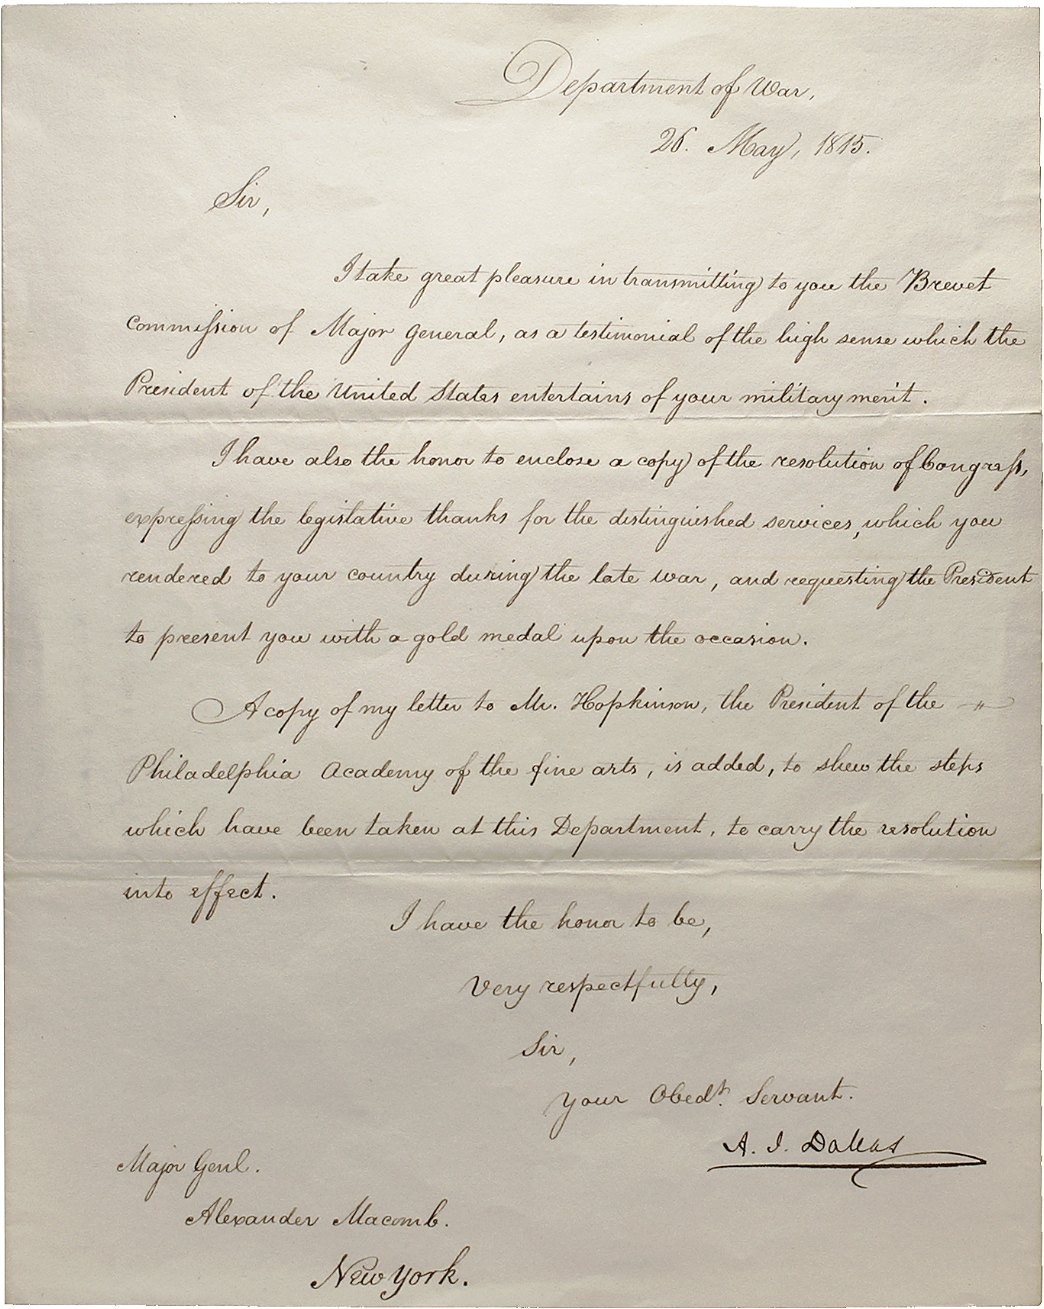 Department of War,
26. May, 1815.
Sir,
I take great pleasure in transmitting to you the Brevet
Commiſsion of Major General, as a testimonial of the high sense which the
President of the United States entertains of your military merit.
I have also the honor to enclose a copy of the resolution of Congreſs,
expreſsing the legislative thanks for the distinguished services, which you
rendered to your country during the late war, and requesting the President
to present you with a gold medal upon the occasion.
A copy of my letter to Mr. Hopkinson, the President of the
Philadelphia Academy of the fine arts, is added, to shew the steps
which have been taken at this Department, to carry the resolution
into effect.
I have the honor to be,
Very respectfully,
Sir,
Your Obedt. Servant.
A. J. Dallas
Major Genl.
Alexander Macomb.
New York.